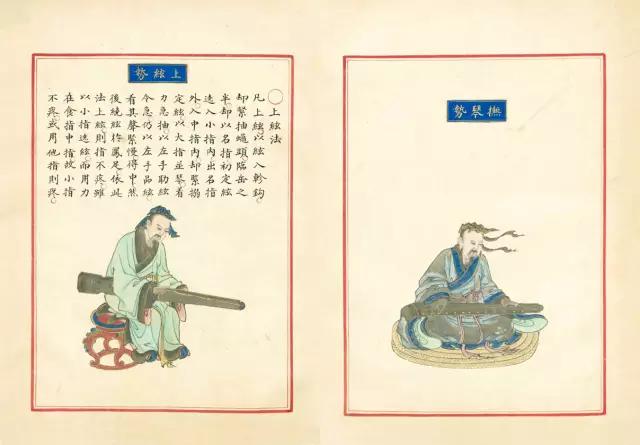 撫琴勢
上絃勢
〇上絃法
凡上絃以絃入軫鈎
却緊抽蠅頭臨岳之
半却以名指初定絃
迭入小指內出名指
外入中指內却緊搦
定絃以大指並琴着
力急抽以左手助絃
令急仍以左手品絃
看其聲緊慢得中然
後繞絃於鳳足依此
法上絃則指不疼雖
以小指迭絃而用力
在食指中指故小指
不疼或用他指則疼